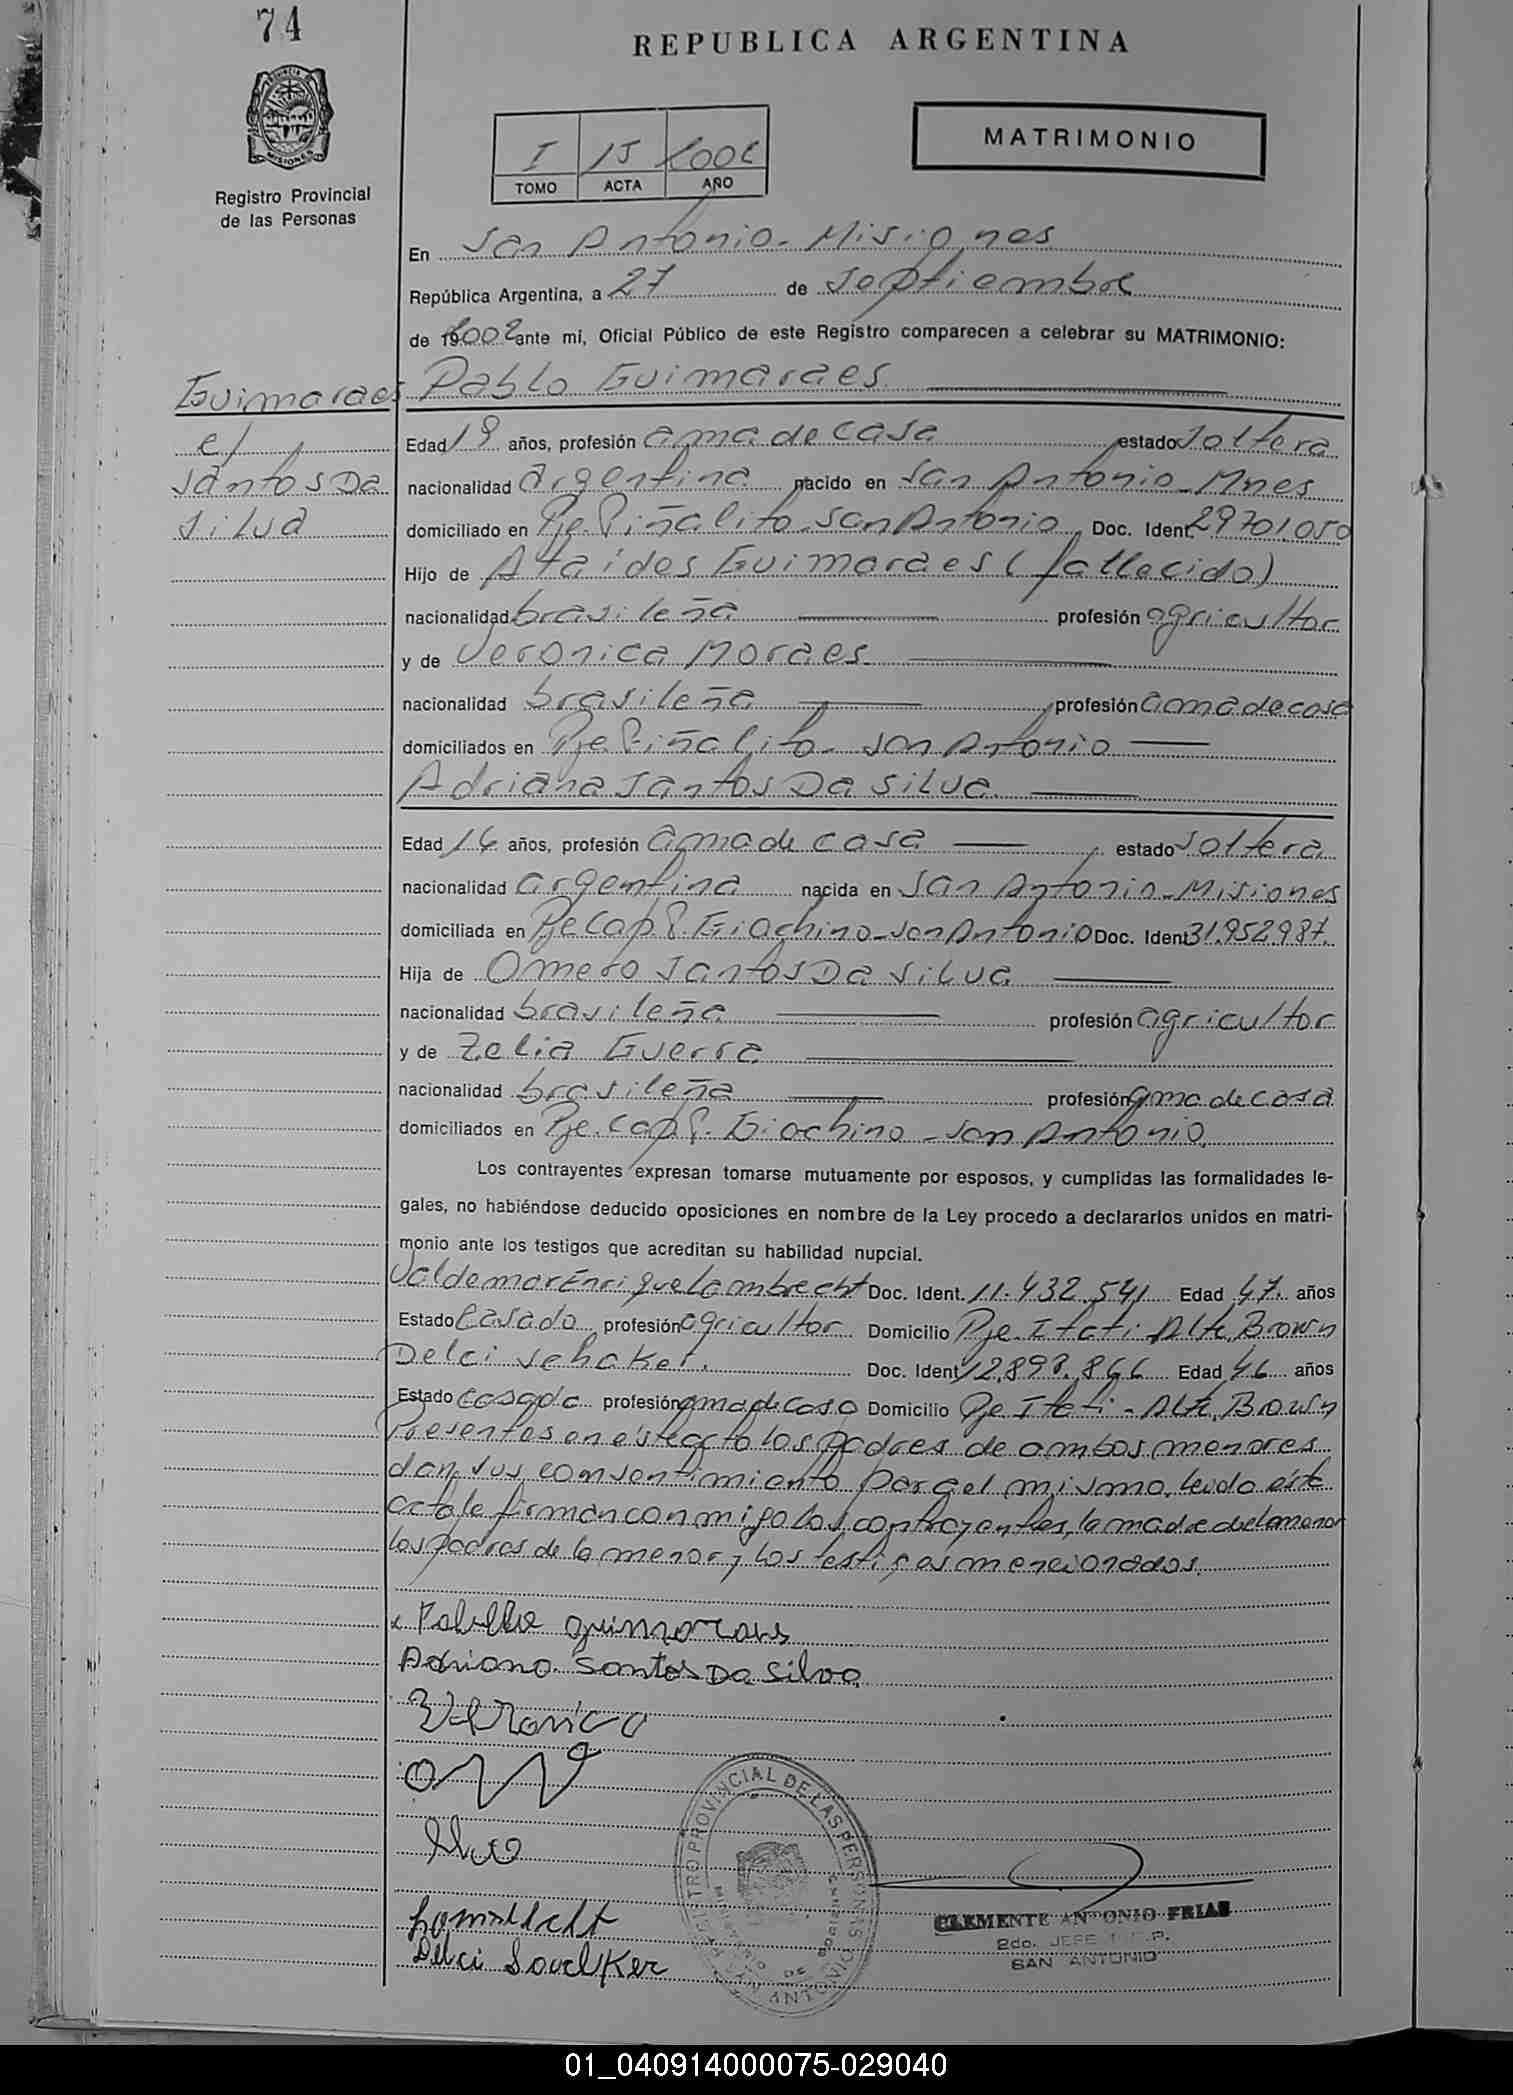 74
REPUBLICA ARGENTINA
PROVINCIA DE
MISIONES
Registro Provincial
de las Personas
I 15 2002
TOMO ACTA AÑO
MATRIMONIO
En San Antonio - Misiones
República Argentina, a 27 de Septiembre
de 2002 ante mí, Oficial Público de este Registro comparecen a celebrar su MATRIMONIO:
Guimaraes
c/
Santos Da
Silva
Pablo Guimaraes
Edad 19 años, profesión ama de casa estado soltera
nacionalidad argentina nacido en San Antonio - Mnes
domiciliado en Pje. Piñalito - San Antonio Doc. Ident. 29701.050
Hijo de Ataídes Guimaraes (fallecido)
nacionalidad brasileña profesión agricultor
y de Veronica Moraes
nacionalidad brasileña profesión ama de casa
domiciliados en Pje. Piñalito - San Antonio
Adriana Santos Da Silva
Edad 16 años, profesión ama de casa estado soltera
nacionalidad argentina nacida en San Antonio - Misiones
domiciliada en Pje Cap. P. Giachino - San Antonio Doc. Ident 31.952.987.
Hija de Omero Santos Da Silva
nacionalidad brasileña profesión agricultor
y de Zelia Guerra
nacionalidad brasileña profesión ama de casa
domiciliados en Pje. Cap. P. Giachino - San Antonio.
Los contrayentes expresan tomarse mutuamente por esposos, y cumplidas las formalidades le-
gales, no habiéndose deducido oposiciones en nombre de la Ley procedo a declararlos unidos en matri-
monio ante los testigos que acreditan su habilidad nupcial.
Valdemar Enrique Lambrecht Doc. Ident. 11.432.541 Edad 47. años
Estado Casado profesión agricultor Domicilio Pje. Itati Alte. Brown
Delci Schaker. Doc. Ident 12.898.866 Edad 46 años
Estado casada profesión ama de casa Domicilio Pje Itati - Alte. Brown
Presentes en éste acto los padres de ambos menores
dan sus consentimiento para el mismo. Leido éste
acta le firman conmigo los contrayentes, la madre del menor
los padres de la menor y los testigos mencionados.
Guimaraes
Adriana Santos Da Silva
Veronica
Lambrecht
Delci
REGISTRO PROVINCIAL DE LAS PERSONAS
SAN ANTONIO
CLEMENTE ANTONIO FRIAS
2do. JEFE
SAN ANTONIO
01_040914000075-029040